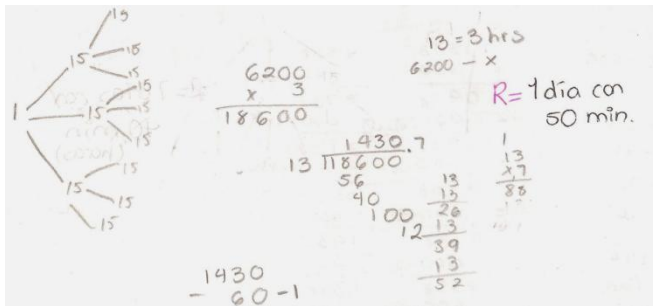 15
15
15
15
15
1
15
15
15
15
15
15
15
6200
x 3
18600
13 = 3 hrs
6200 - x
R= 1 día con
50 min.
1430.7
13 18600
56
40
100
12
13
13
26
13
39
13
52
1
13
x 7
1430
- 60 - 1